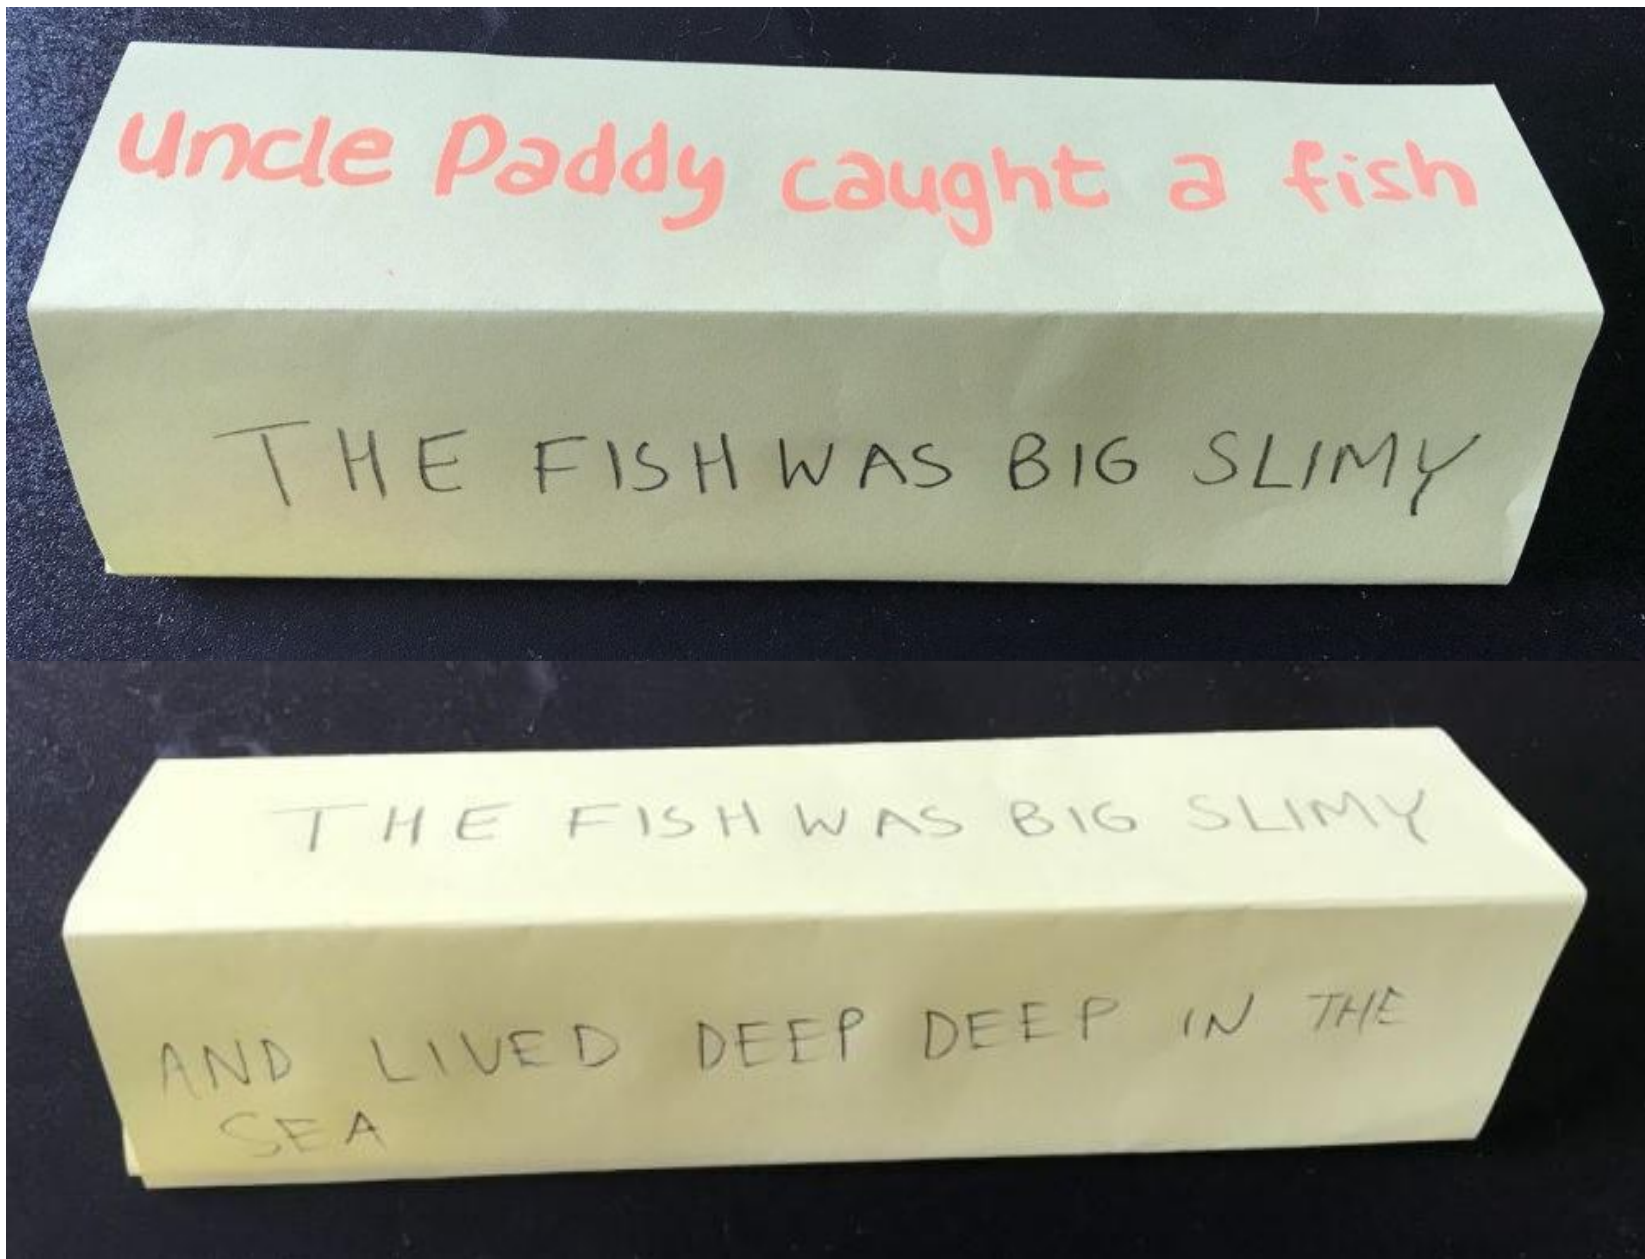 uncle Paddy caught a fish
THE FISH WAS BIG SLIMY
THE FISH WAS BIG SLIMY
AND LIVED DEEP DEEP IN THE
SEA